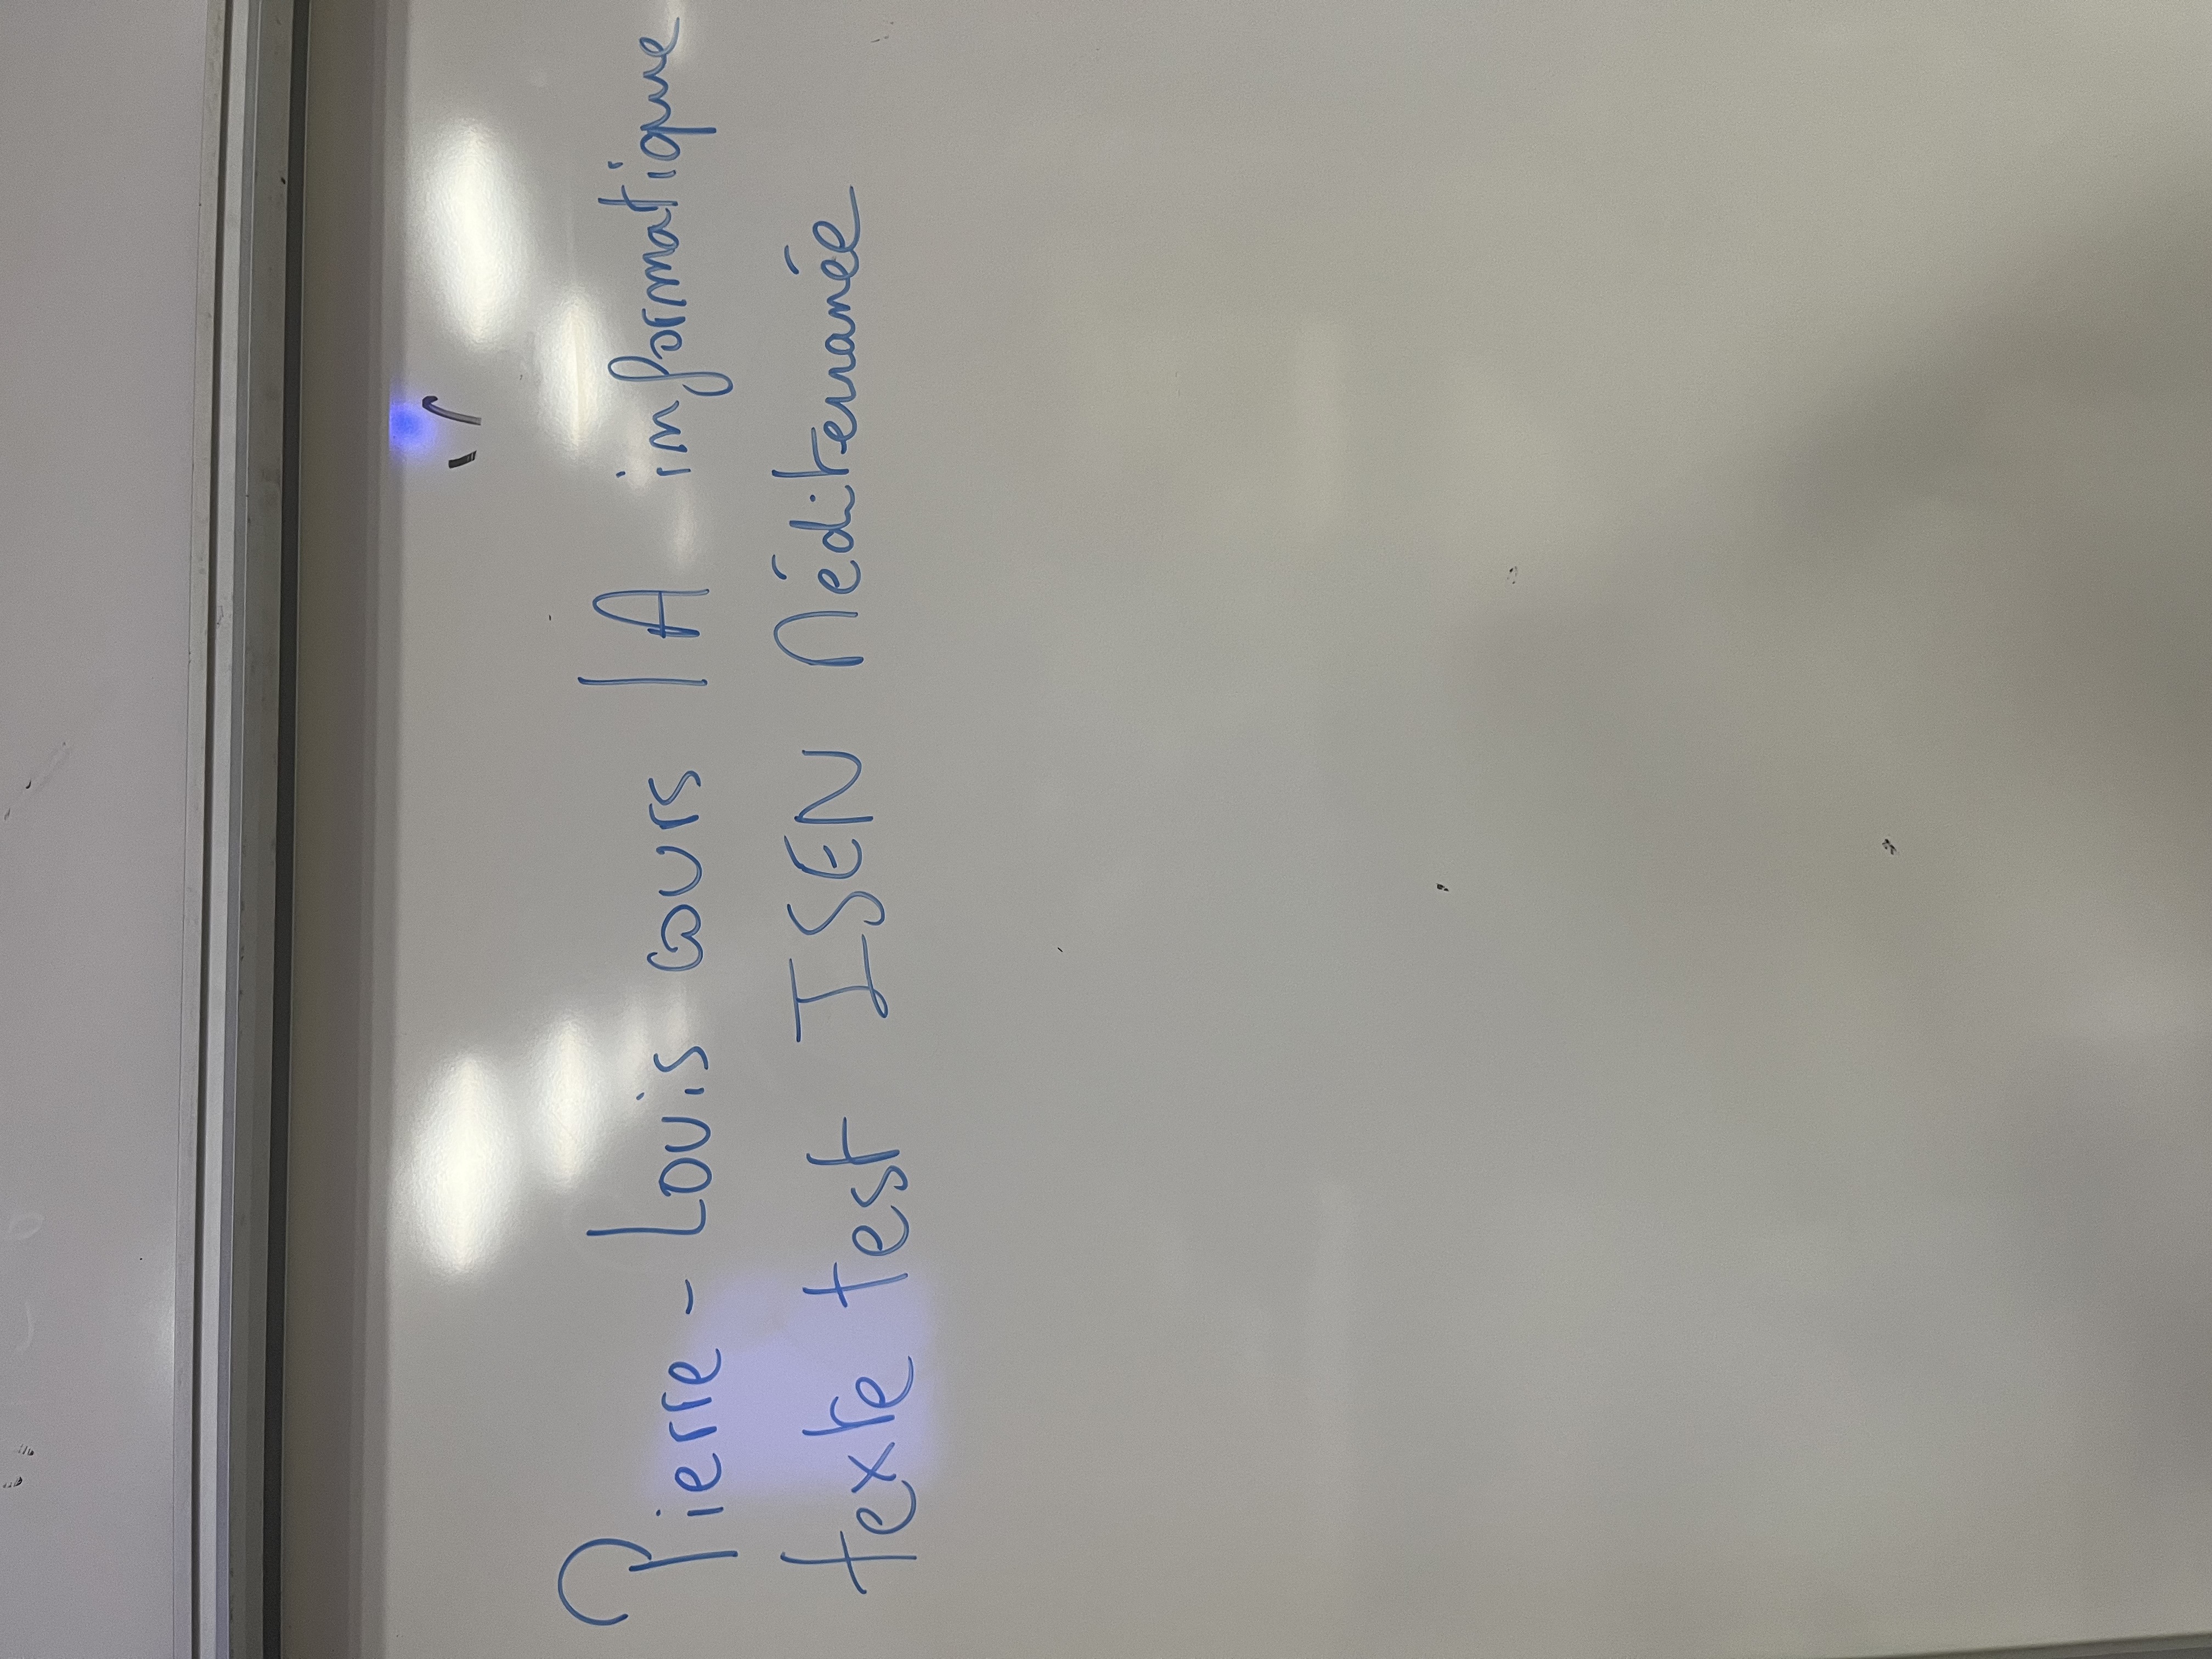 Pierre-Louis cours IA informatique
texte test ISEN Méditerranée